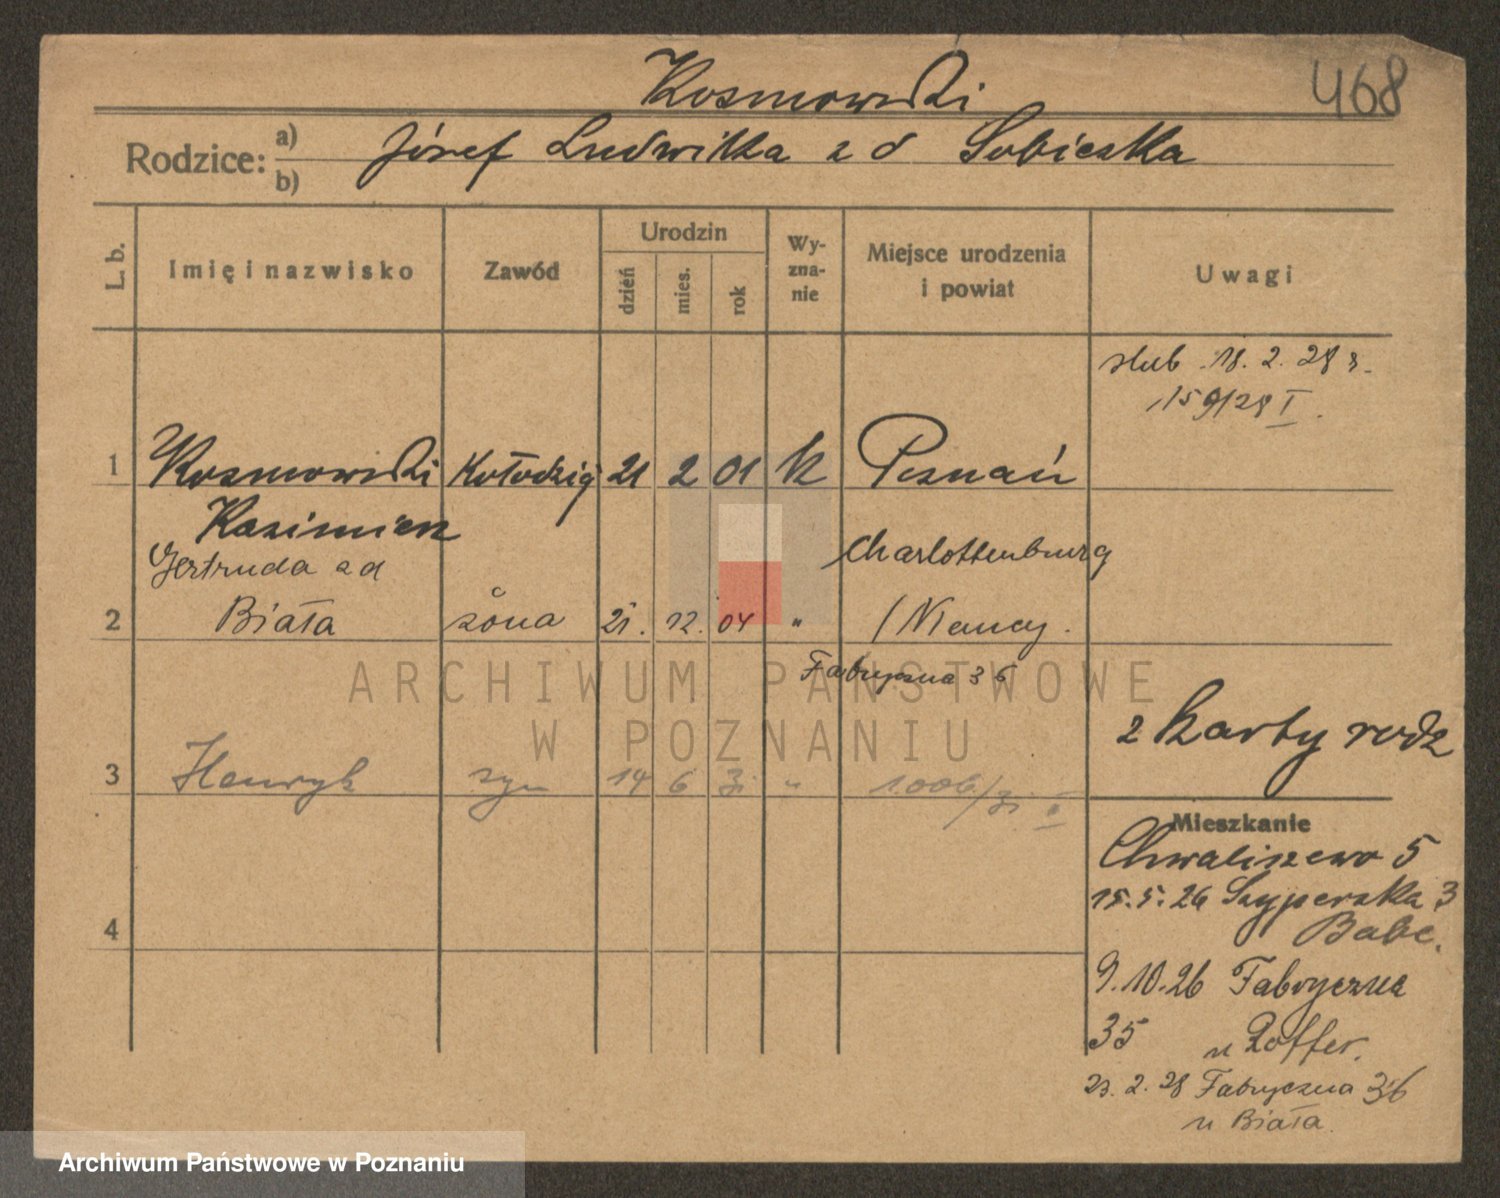 Kosmowski
468
Rodzice: a) b)
Józef Ludwika z d Sobieska
L. b.
Imię i nazwisko
Zawód
Urodzin
dzień
mies.
rok
Wy-
zna-
nie
Miejsce urodzenia
i powiat
Uwagi
ślub 18. 2. 28 r.
159/28 I.
1 Kosmowski Kołodziej 21 2 01 k Poznań
Kazimierz
Gertruda z d Charlottenburg
2 Biała żona 21. 12. 04 " / Niemcy.
Fabryczna 36
z karty rodz
3 Henryk syn 14 6 31 " 1006/31 I
Mieszkanie
Chwaliszewo 5
15.5.26 Szyperska 3
Babc.
4
9.10.26 Fabryczna
35 u Roffer.
23. 2. 28 Fabryczna 36
u Biała.
ARCHIWUM PAŃSTWOWE
W POZNANIU
Archiwum Państwowe w Poznaniu